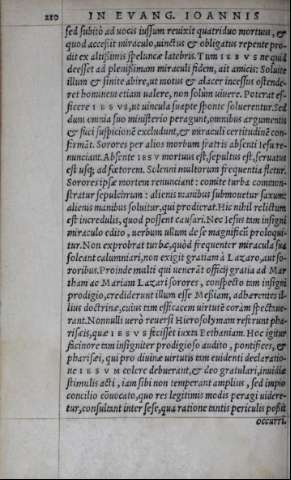 210 IN EVANG. IOANNIS
sed subitò ad uocis iussum reuixit quatriduo mortuus, &
quod accessit miraculo, uinctus & obligatus repente pro-
dit ex altissimis speluncæ latebris. Tum IESVS ne quid
deesset ad plenissimam miraculi fidem, ait amicis: Soluite
illum & sinite abire, ut motus & alacer incessus ostende-
ret hominem etiam ualere, non solùm uiuere. Poterat ef-
ficere IESVS, ut uincula suapte sponte soluerentur. Sed
dum omnia suo ministerio peragunt, omnibus argumentis
& fuci suspicionē excludunt, & miraculi certitudinē con-
firmāt. Sorores per alios morbum fratris absenti Iesu re-
nunciant. Absente IESV mortuus est, sepultus est, seruatus
est usq; ad fœtorem. Solenni multorum frequentia fletur.
Sorores ipsæ mortem renunciant: comite turba common-
stratur sepulcrum: alienis manibus submouetur saxum:
alienis manibus soluitur, qui prodierat. Hic nihil relictum
est incredulis, quod possent causari. Nec Iesus tam insigni
miraculo edito, uerbum ullum de se magnificū proloqui-
tur. Non exprobrat turbæ, quòd frequenter miracula sua
soleant calumniari, non exigit gratiam à Lazaro, aut so-
roribus. Proinde multi qui uenerāt officij gratia ad Mar
tham ac Mariam Lazari sorores, conspecto tam insigni
prodigio, crediderunt illum esse Messiam, adhærentes il-
lius doctrinæ, cuius tam efficacem uirtutē coràm spectaue-
rant. Nonnulli uerò reuersi Hierosolymam referunt pha-
risæis, quæ IESVS fecisset iuxta Bethaniam. Hoc igitur
facinore tam insigniter prodigioso audito, pontifices, &
pharisæi, qui pro diuinæ uirtutis tam euidenti declaratio-
ne IESVM colere debuerant, & deo gratulari, inuidiæ
stimulis acti, iam sibi non temperant amplius, sed impio
concilio cōuocato, quo res legitimis modis peragi uidere-
tur, consultant inter sese, qua ratione tantis periculis possit
occurri.